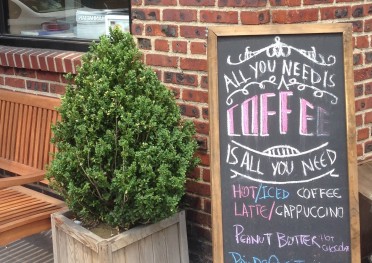 ALL YOU NEED IS
COFFEE
IS ALL YOU NEED
HOT/ICED COFFEE
LATTE/CAPPUCCINO
PEANUT BUTTER HOT
CHOCOLATE